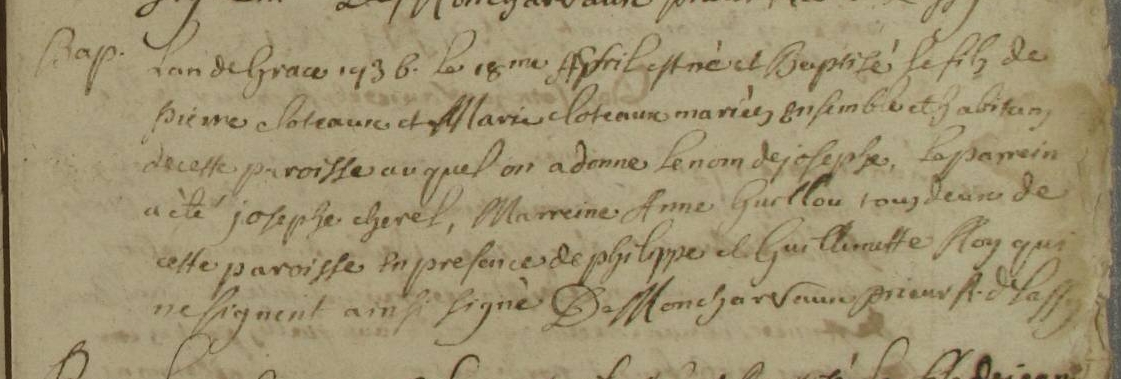 De Moncharvaux prieur
Bap. Lan de Grace 1736. le 18me Apvril est né et Baptisé le filz de
pierre cloteaux et Marie cloteaux mariéz ensemble et habitans
de cette paroisse auquel on a donne le nom de josephe, le parrein
a èté josephe cherel, Marreine Anne Guillou tous deux de
cette paroisse en presence de philippe et Guillemette Roy qui
ne signent ainsi signé De Moncharvaux prieur R. d'Lassy